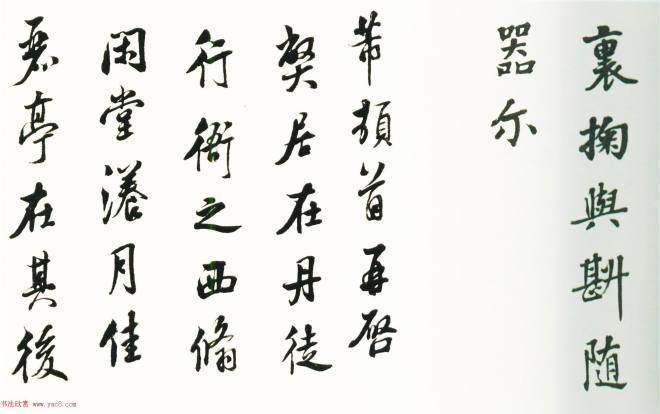 裏掬與斟随
器尔
芾頓首再启
弊居在丹徒
行衙之西翛
閑堂漾月佳
麗亭在其後
书法欣赏 www.yac8.com